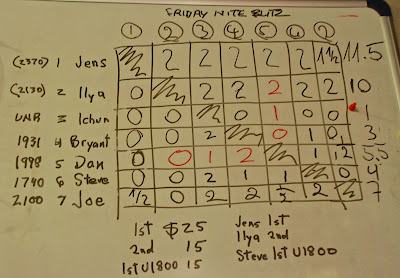 FRIDAY NITE BLITZ
1 2 3 4 5 6 7
(2370) 1 Jens 2 2 2 2 2 1½ 11.5
(2130) 2 Ilya 0 2 2 2 2 2 10
UNR 3 Ichun 0 0 0 1 0 0 1
1931 4 Bryant 0 0 2 0 1 0 3
1998 5 Dan 0 0 1 2 1 1½ 5.5
1740 6 Steve 0 0 2 1 1 0 4
2100 7 Joe ½ 0 2 2 ½ 2 7
1st $25 Jens 1st
2nd 15 Ilya 2nd
1st U1800 15 Steve 1st U1800